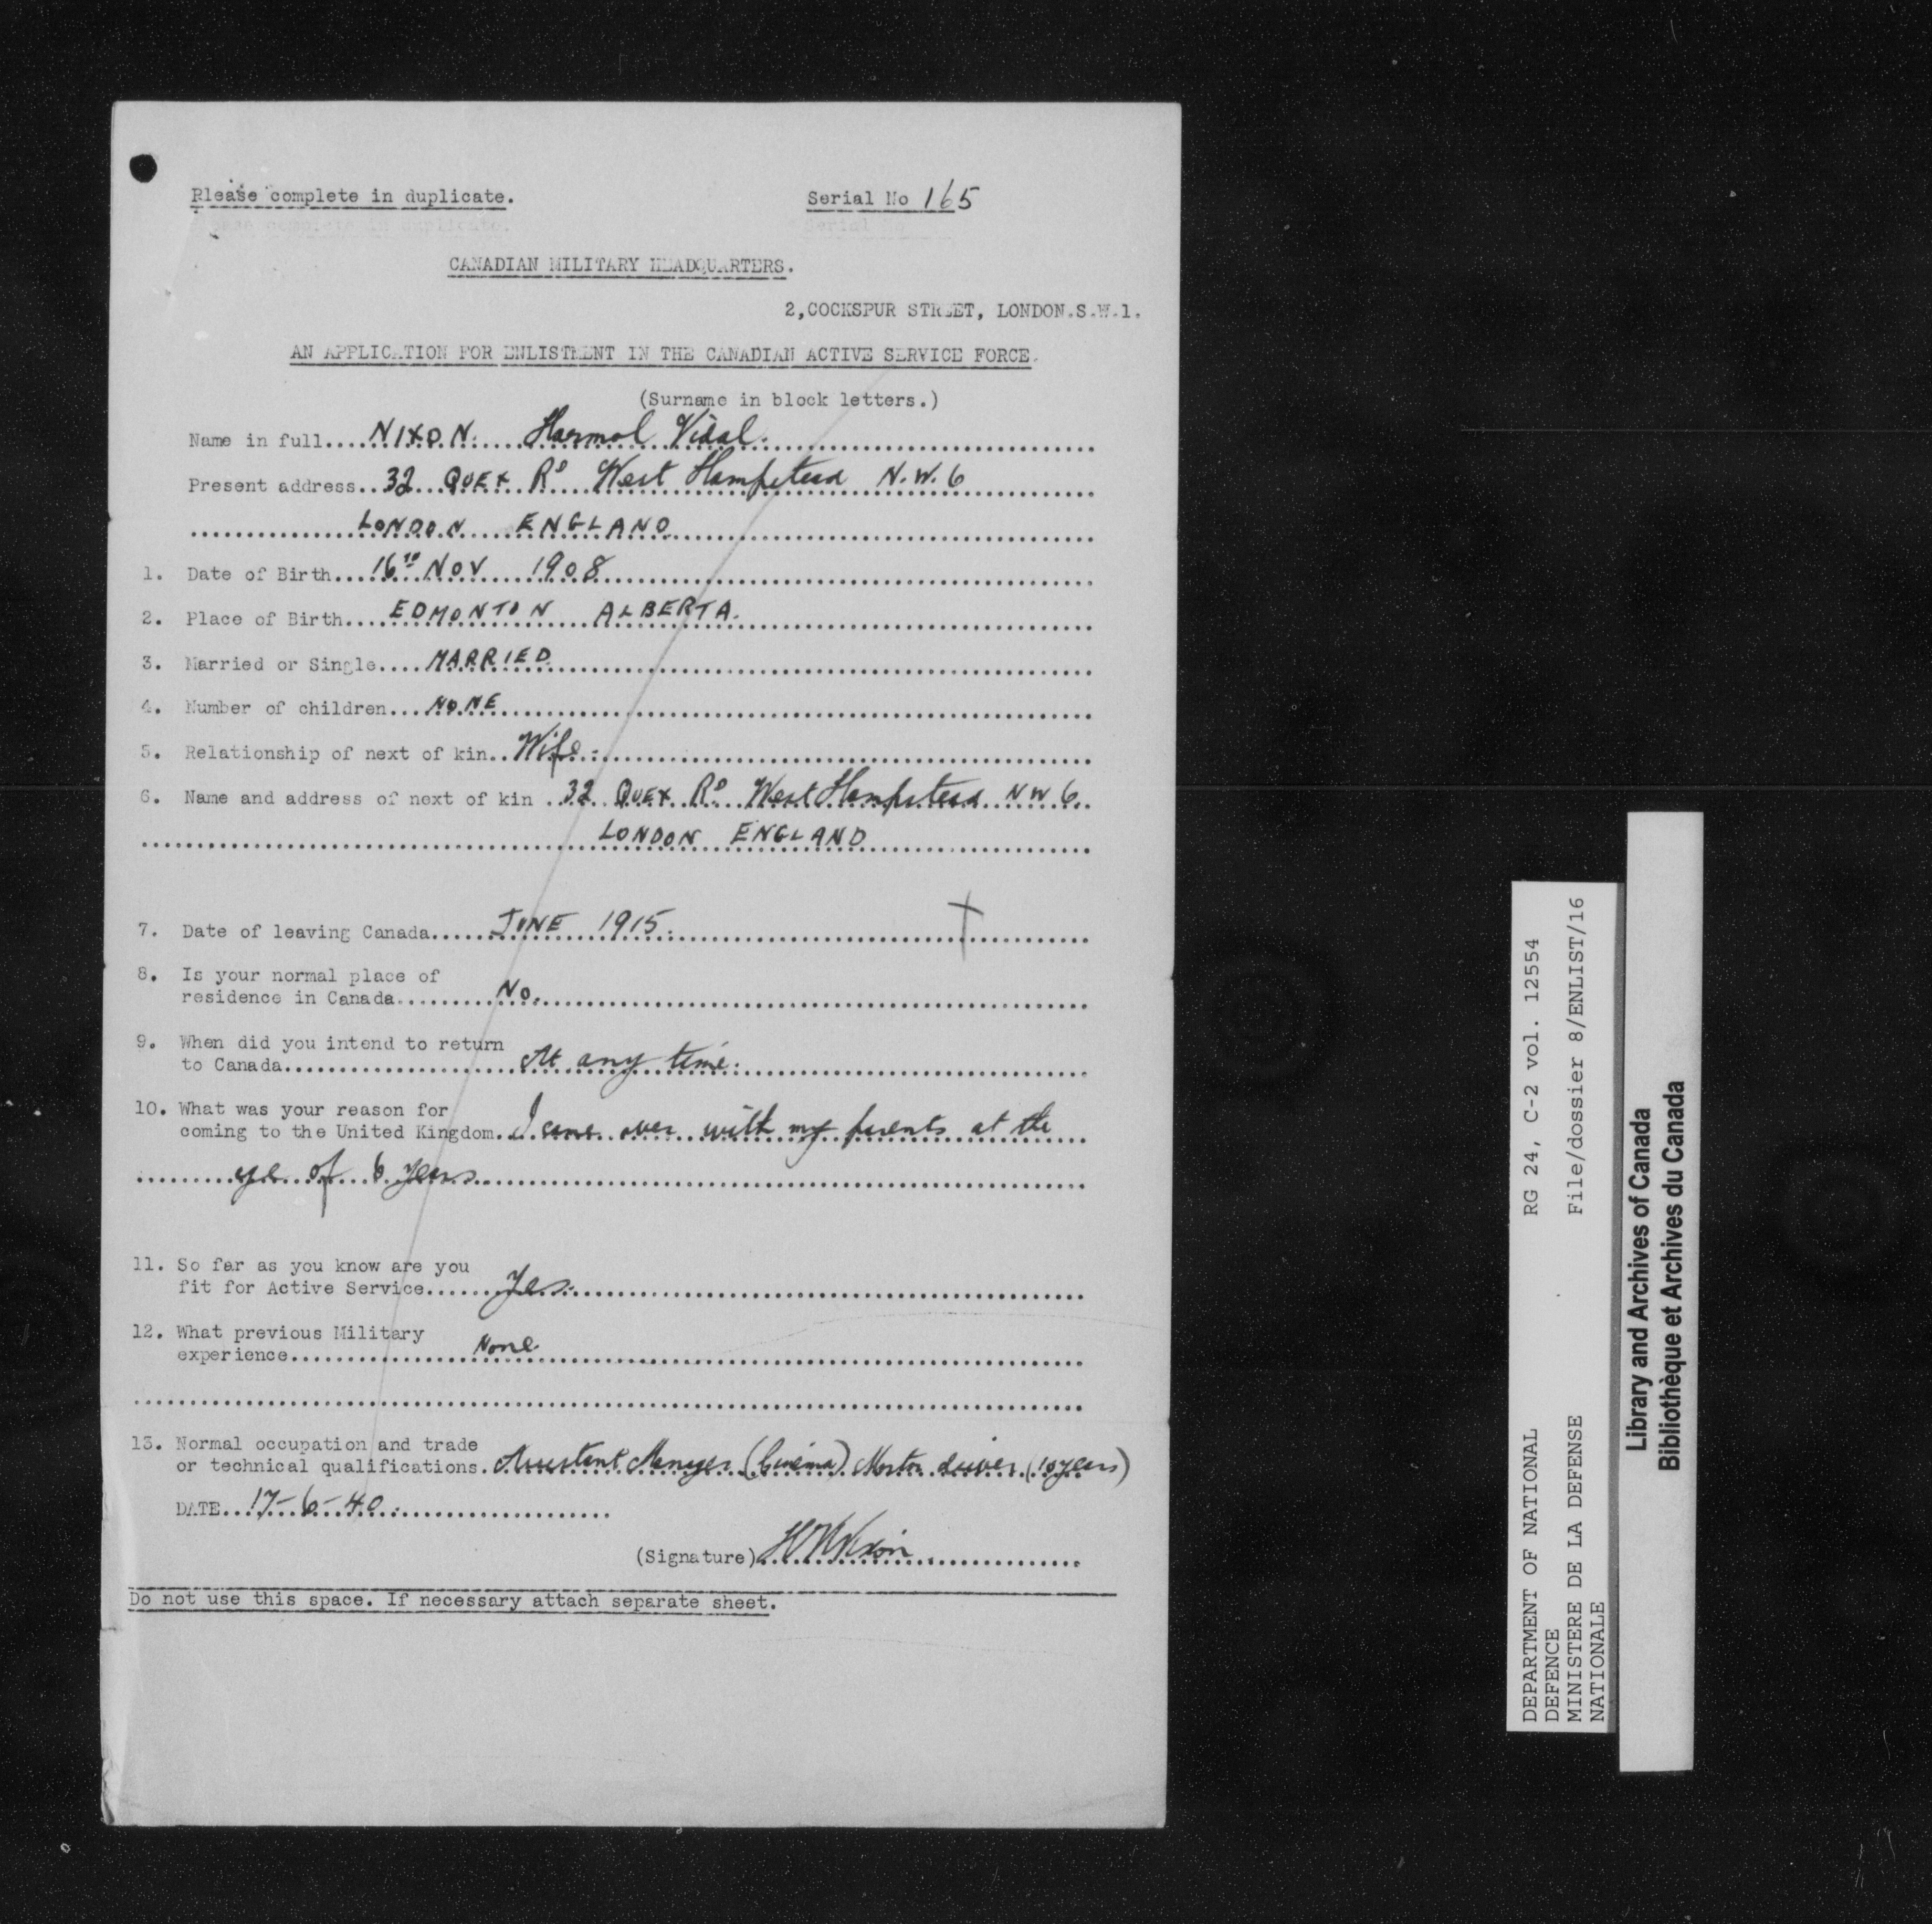 Please complete in duplicate.
Serial No 165
CANADIAN MILITARY HEADQUARTERS.
2,COCKSPUR STREET, LONDON.S.W.1.
AN APPLICATION FOR ENLISTMENT IN THE CANADIAN ACTIVE SERVICE FORCE.
(Surname in block letters.)
Name in full....NIXON. Harmol Vidal.
Present address..32 QUEX RD West Hampstead N.W.6
LONDON ENGLAND
1. Date of Birth...16TH NOV 1908
2. Place of Birth....EDMONTON ALBERTA.
3. Married or Single....MARRIED
4. Number of children...NONE
5. Relationship of next of kin..Wife.
6. Name and address of next of kin..32 QUEX RD West Hampstead NW 6
LONDON ENGLAND
7. Date of leaving Canada.....JUNE 1915.
8. Is your normal place of
residence in Canada.........No.
9. When did you intend to return
to Canada....................At any time.
10. What was your reason for
coming to the United Kingdom. I came over with my parents at the
age of 6 years
11. So far as you know are you
fit for Active Service......Yes.
12. What previous Military
experience................None
13. Normal occupation and trade
or technical qualifications. Assistant Manager (Cinema) Motor driver (10 years)
DATE...17-6-40.
(Signature) H V Nixon
Do not use this space. If necessary attach separate sheet.
DEPARTMENT OF NATIONAL
DEFENCE
MINISTERE DE LA DEFENSE
NATIONALE
RG 24, C-2 vol. 12554
File/dossier 8/ENLIST/16
Library and Archives of Canada
Bibliothèque et Archives du Canada